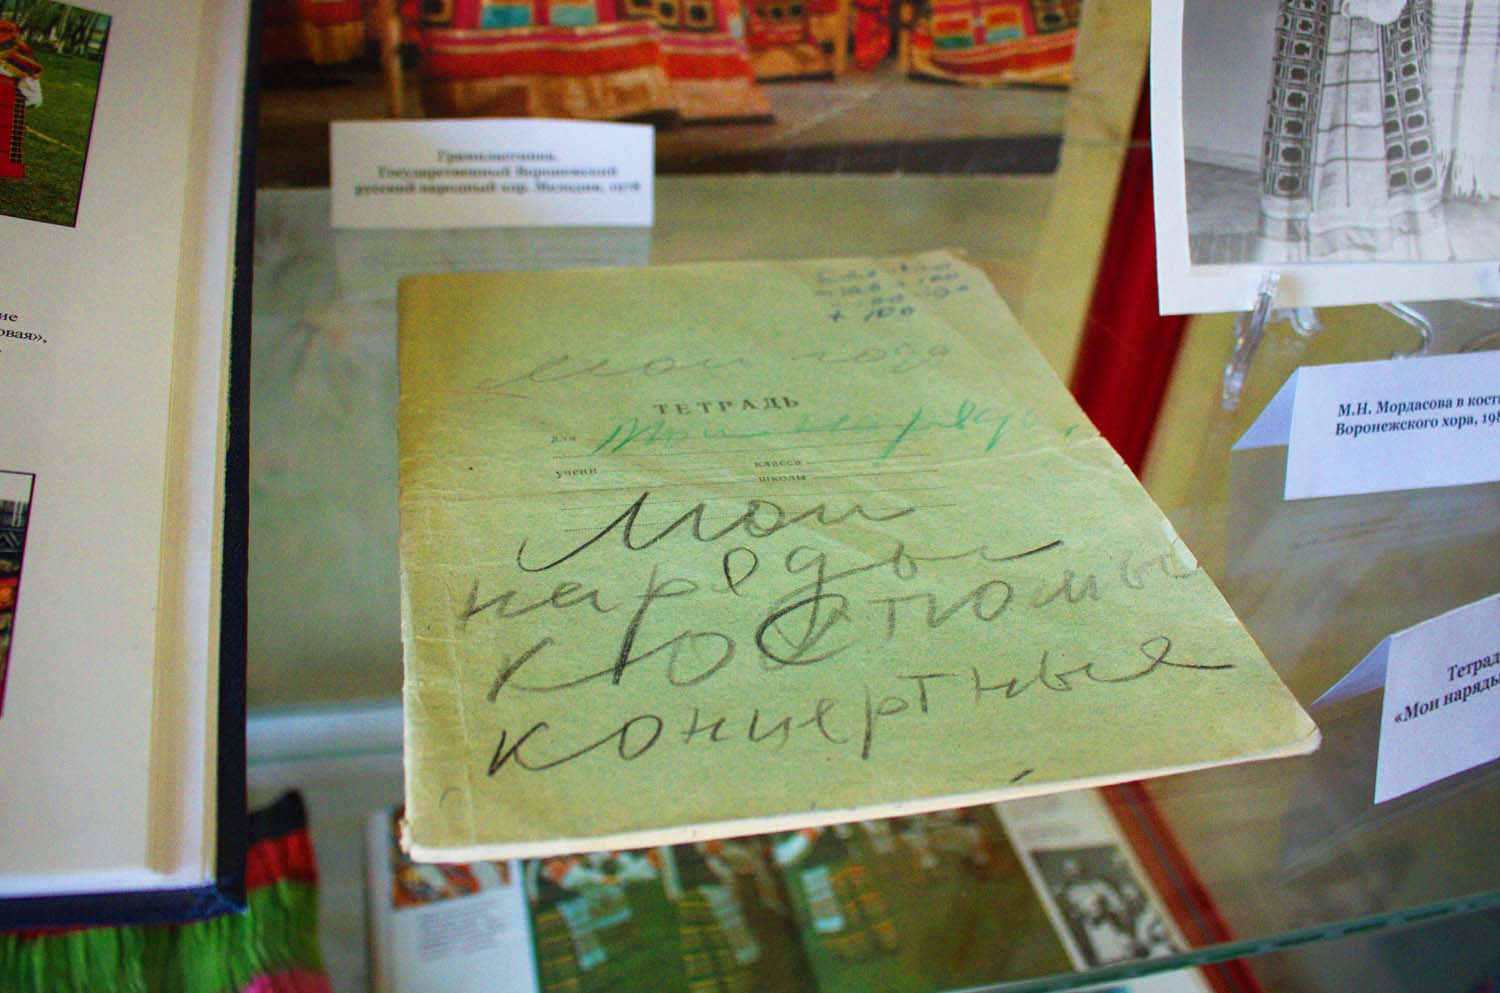 ие
овая»,
Грампластинка.
Государственный Воронежский
русский народный хор. Мелодия, 1978
М.Н. Мордасова в кост
Воронежского хора, 198
Тетрад
«Мои наряды
+ 100
Мои
ТЕТРАДЬ
для Мои наряды
учени
класса
школы
Мои
наряды
костюмы
концертные